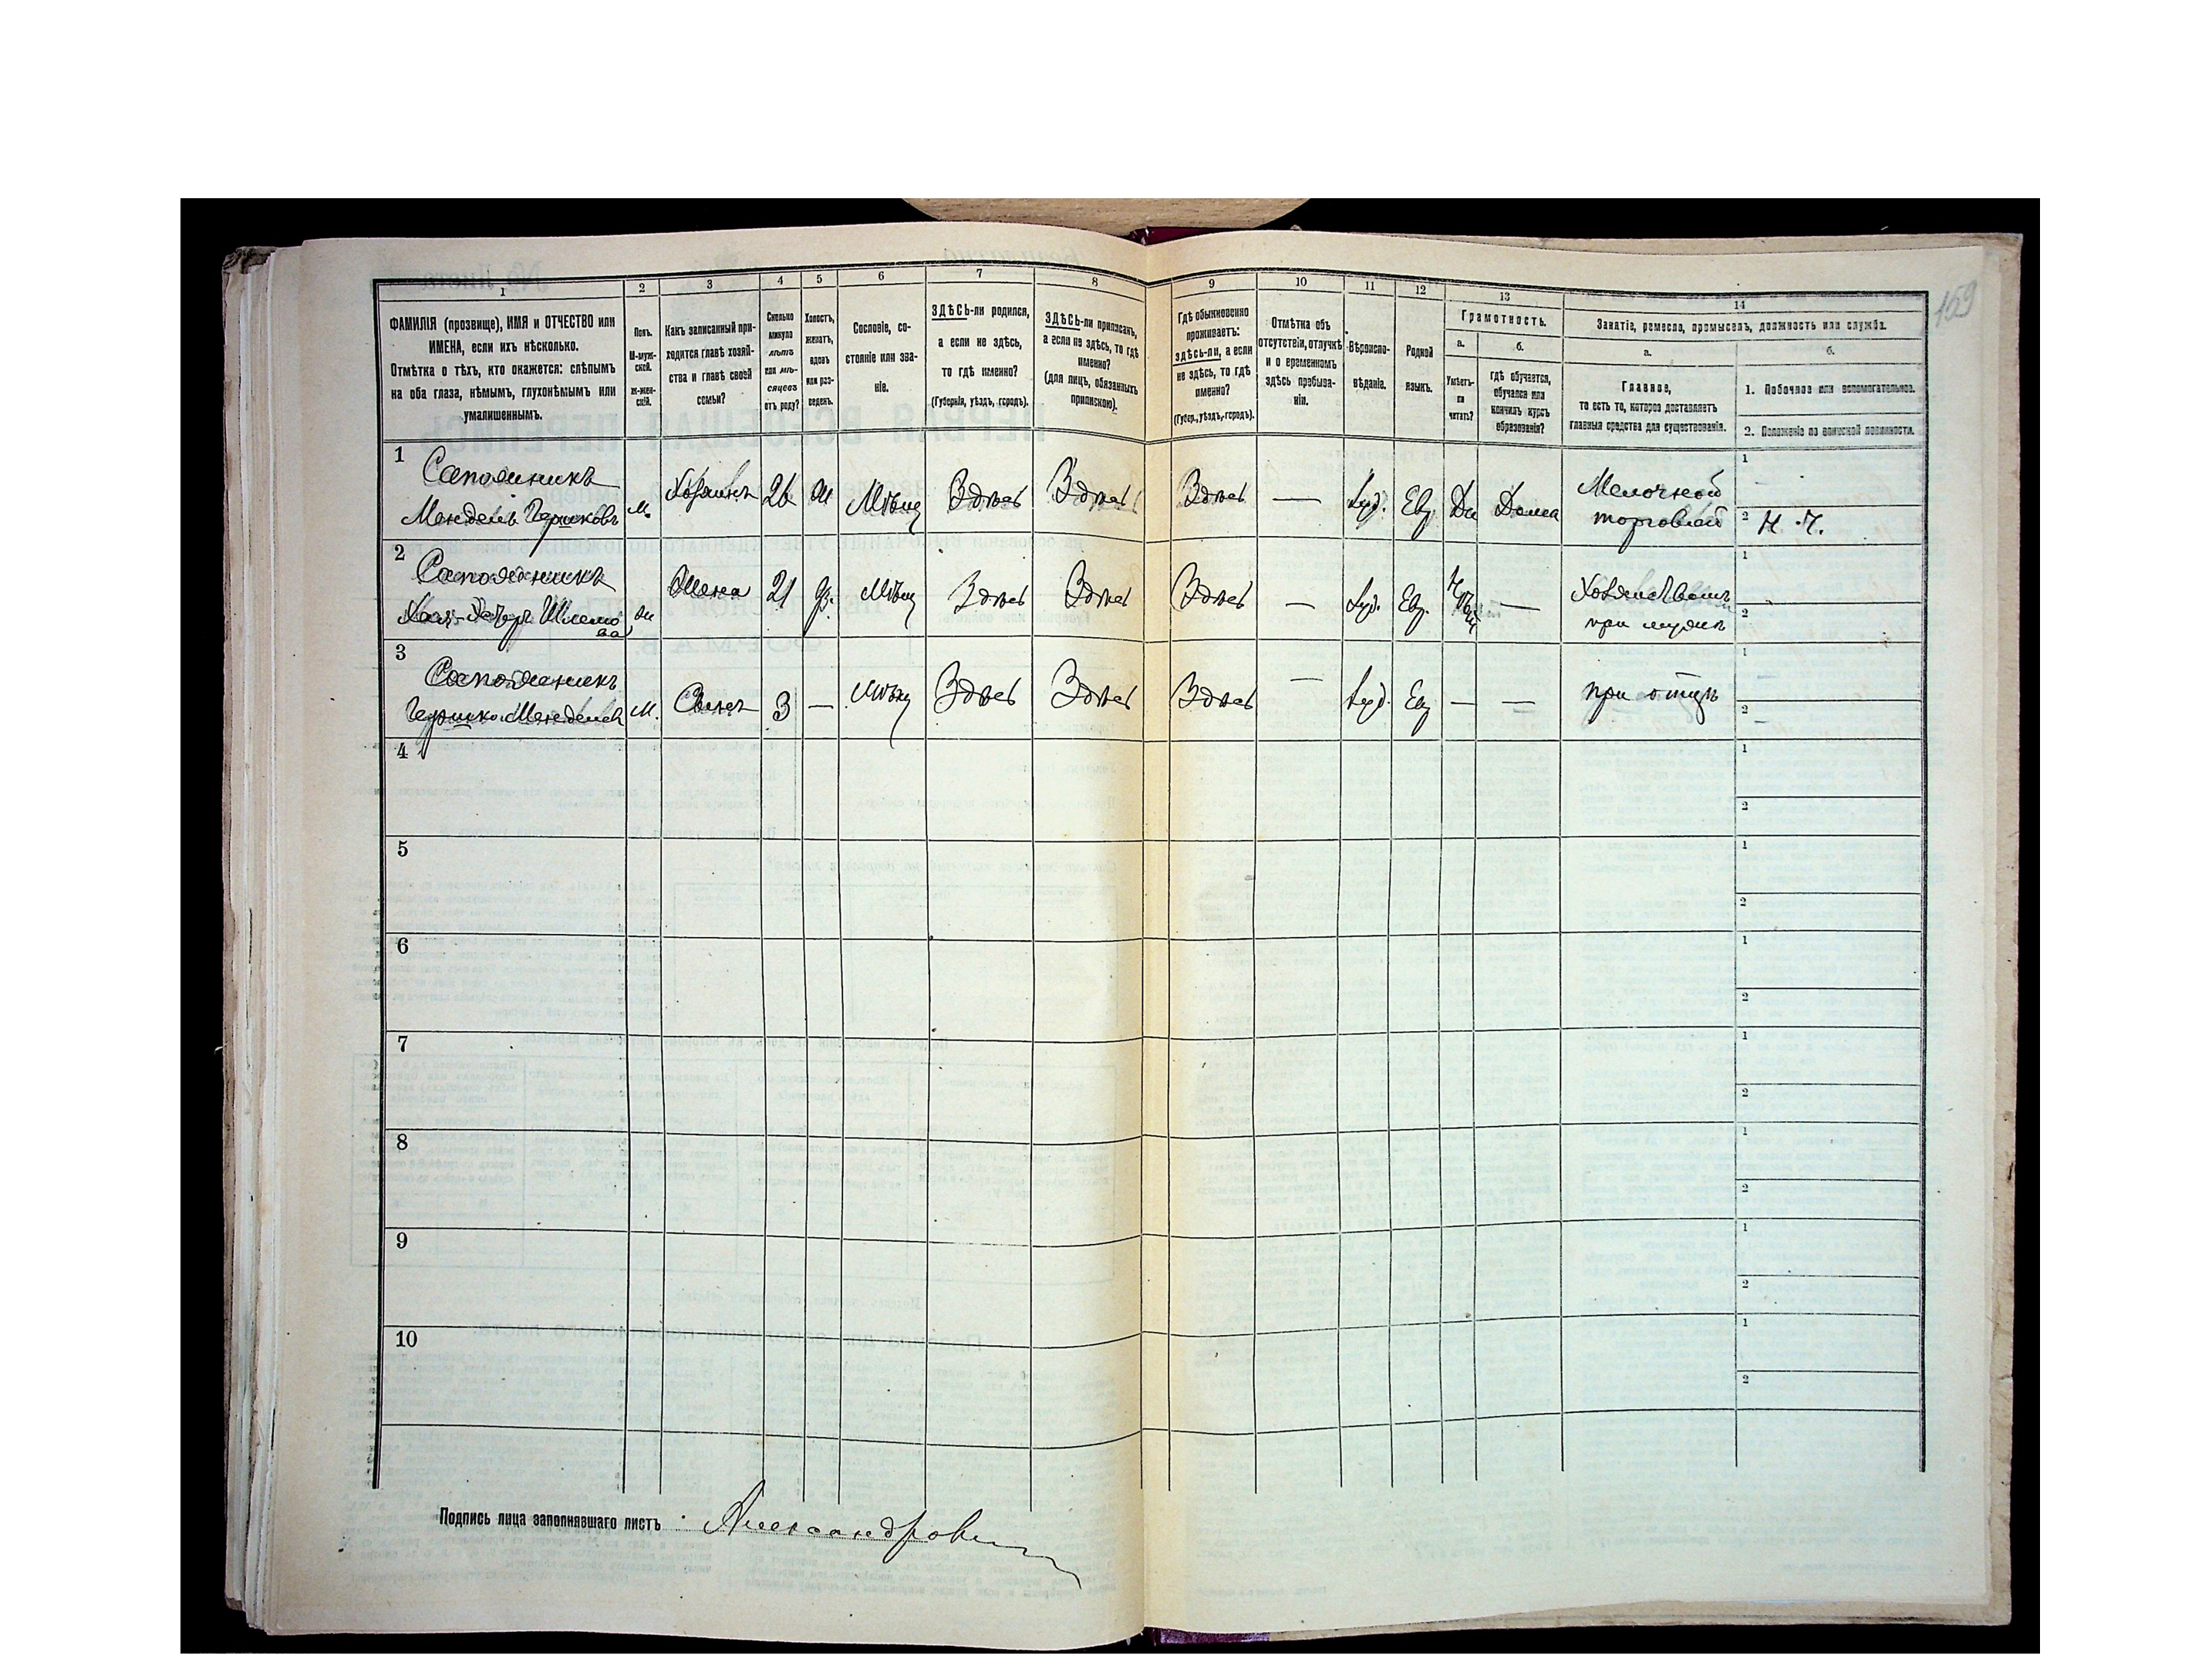 159
1
2
3
4
5
6
7
8
9
10
11
12
13
14
ФАМИЛІЯ (прозвище), ИМЯ и ОТЧЕСТВО или
ИМЕНА, если ихъ нѣсколько.
Отмѣтка о тѣхъ, кто окажется: слѣпымъ
на оба глаза, нѣмымъ, глухонѣмымъ или
умалишеннымъ.
Полъ.
М-муж-
ской.
Ж-жен-
скій.
Какъ записанный при-
ходится главѣ хозяй-
ства и главѣ своей
семьи?
Сколько
минуло
лѣтъ
или мѣ-
сяцевъ
отъ роду?
Холостъ,
женатъ,
вдовъ
или раз-
веденъ.
Сословіе, со-
стояніе или зва-
ніе.
ЗДѢСЬ-ли родился,
а если не здѣсь,
то гдѣ именно?
(Губернія, уѣздъ, городъ).
ЗДѢСЬ-ли приписанъ,
а если не здѣсь, то гдѣ
именно?
(для лицъ, обязанныхъ
припискою).
Гдѣ обыкновенно
проживаетъ:
здѣсь-ли, а если
не здѣсь, то гдѣ
именно?
(Губер., уѣздъ, городъ).
Отмѣтка объ
отсутствіи, отлучкѣ
и о временномъ
здѣсь пребыва-
ніи.
Вѣроиспо-
вѣданіе.
Родной
языкъ.
Грамотность.
а.
Умѣетъ-
ли
читать?
б.
гдѣ обучается,
обучался или
кончилъ курсъ
образованія?
Занятіе, ремесло, промыселъ, должность или служба.
а.
Главное,
то есть то, которое доставляетъ
главныя средства для существованія.
б.
1. Побочное или вспомогательное.
2. Положеніе по воинской повинности.
1
Сапожникъ
Мендель Гершковъ
м.
Хозяинъ
26
ж
Мѣщ
Здѣсь
Здѣсь
Здѣсь
—
Іуд.
Евр.
Да
Дома
Мелочной
торговлей
1
2 Н. Ч.
2
Сапожникъ
Хая-Шлемо
ва
ж
Жена
21
З.
Мѣщ
Здѣсь
Здѣсь
Здѣсь
—
Іуд.
Евр.
Нѣтъ
—
при мужѣ
1
2
3
Сапожникъ
Гершко Менделев
м.
Сынъ
3
—
Мѣщ
Здѣсь
Здѣсь
Здѣсь
—
Іуд.
Евр
—
—
при отцѣ
1
2
4
1
2
5
1
2
6
1
2
7
1
2
8
1
2
9
1
2
10
1
2
Подпись лица заполнявшаго листъ
Александрович